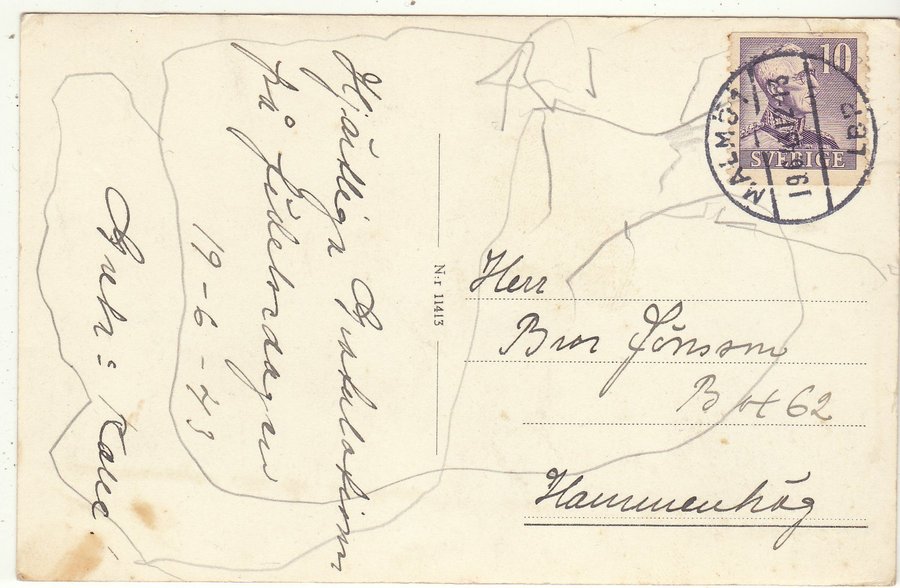 Hjärtliga Gratulationer
på födelsedagen
19-6-43
N:r 11413
10
SVERIGE
MALMÖ 1
19.6.43.17-2
LBR
Herr
Bror Jönsson
Box 62
Hammenhög